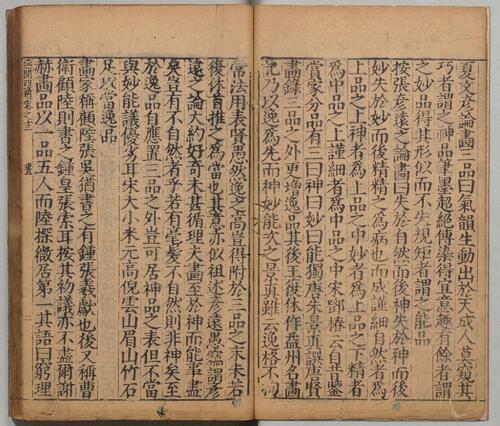 夏文彥論畫三品曰氣韻生動出於天成人莫窺其
巧者謂之神品筆墨超絕傳染得宜意趣有餘者謂
之妙品得其形似而不失規矩者謂之能品
按張彥遠之論畫曰失於自然而後神失於神而後
妙失於妙而後精精之爲病也而成謹細自然者爲
上品之上神者爲上品之中妙者爲上品之下精者
爲中品之上謹細者爲中品之中宋鄧椿云自昔鑒
賞家分品有三曰神曰妙曰能獨唐朱景真譔唐賢
畫錄三品之外更增逸品其後王復休作益州名畫
記乃以逸爲先而神妙能次之景真雖云逸格不
常法用表賢愚然逸之高豈得附於三品之末未若
復休首推之爲當也其意亦似祖述彥遠愚竊謂彥
遠之論大約好奇未甚循理夫畫至於神而能事盡
矣豈有不自然者乎若有毫髮不自然則非神矣至
於逸品自應置三品之外豈可居神品之表但不當
與妙能議優劣耳宋大小米元高倪雲山眉山竹石
足以當逸品
畫家稱顧陸張吳猶書之有鍾張羲獻也後又稱曹
衛顧陸則書之鍾皇張索耳按其約議亦不盡爾謝
赫畫品以一品五人而陸探微居第一其語曰窮理